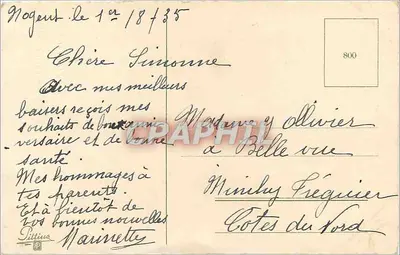 Nogent le 1er/8/35
Chère Simonne
Avec mes meilleurs
baisers reçois mes
souhaits de bon anni
versaire et de bonne
santé.
Mes hommages à
tes parents
Et à bientôt de
vos bonnes nouvelles
Marinette
800
Ollivier
à Belle vue
Minihy Tréguier
Côtes du Nord
CPAPHIL